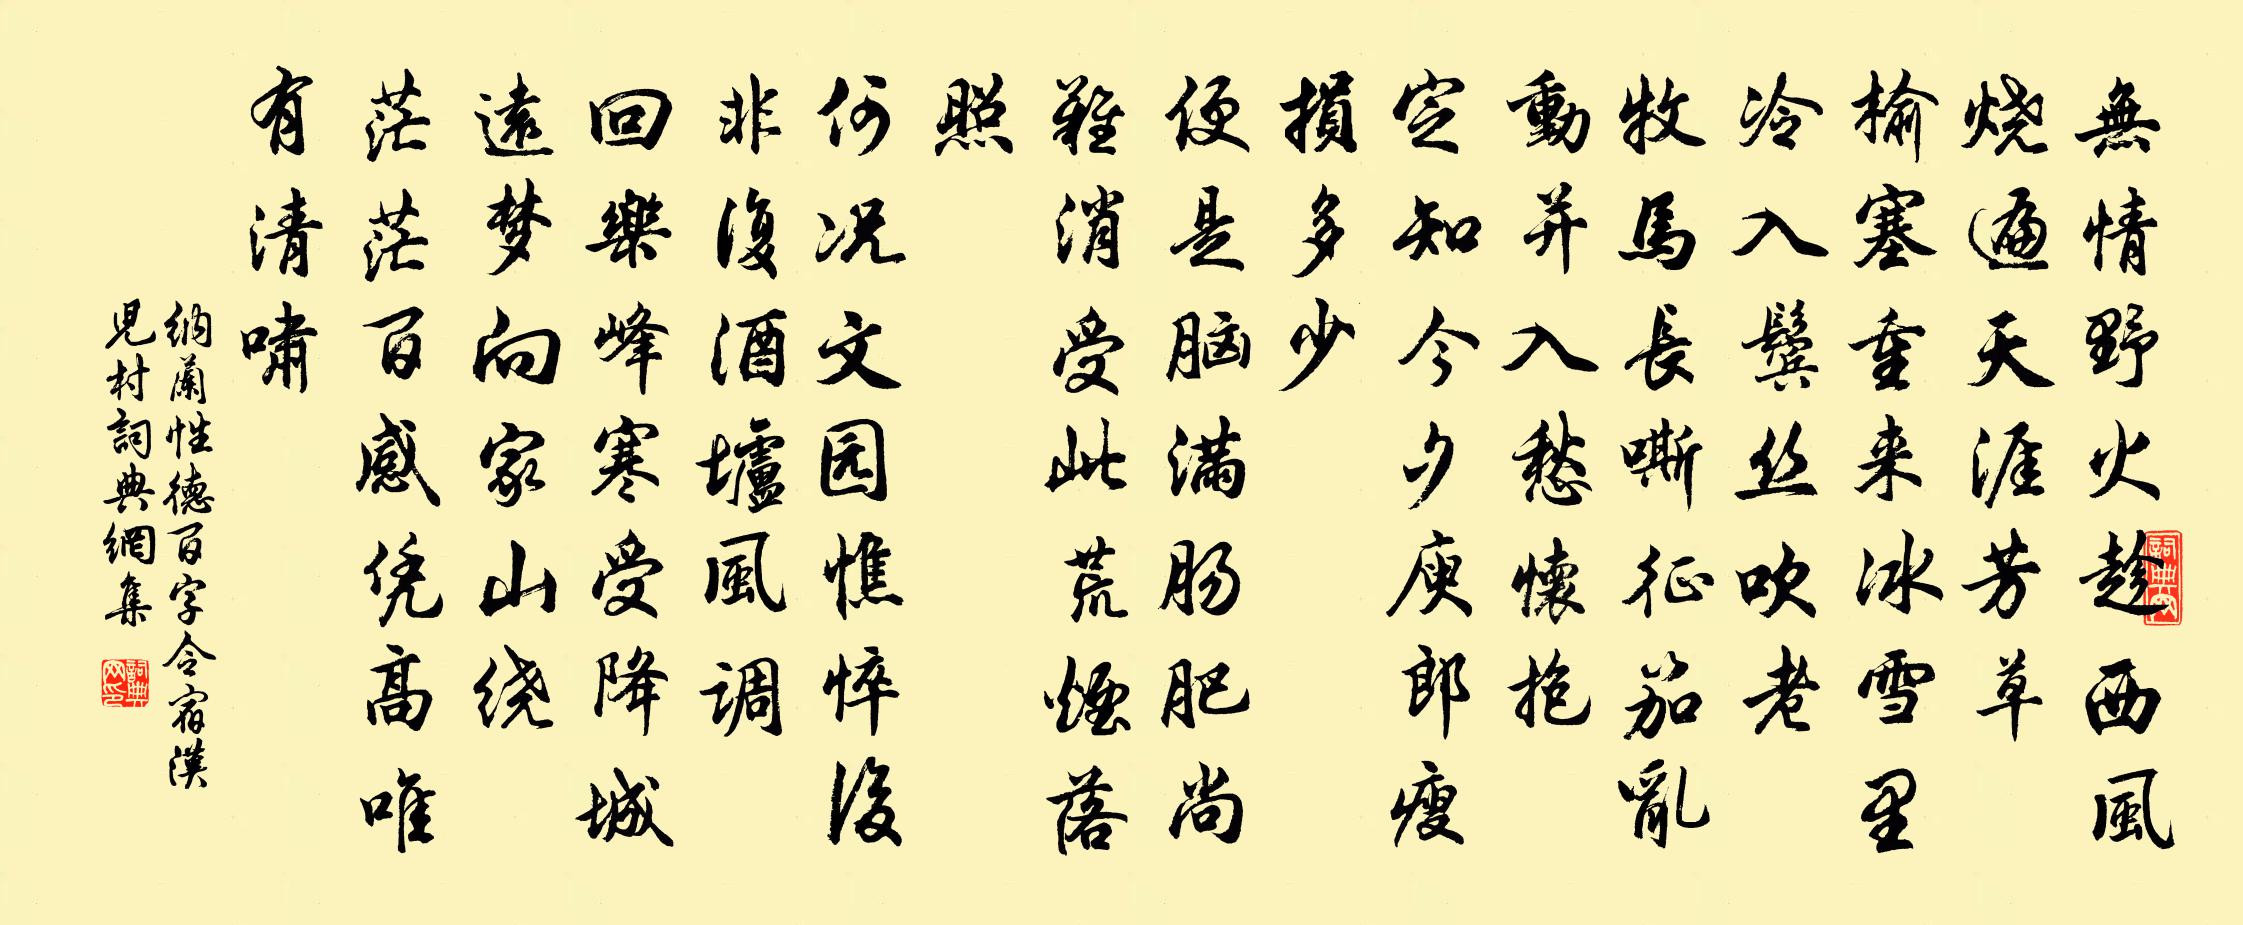 無情野火趁西風
烧遍天涯芳草
榆塞重来冰雪里
冷入鬓丝吹老
牧馬長嘶征笳亂
動并入愁懷抱
定知今夕庾郎瘦
損多少
便是脑满肠肥尚
難消受此荒煙落
照
何况文园憔悴後
非復酒壚風调
回樂峰寒受降城
遠梦向家山绕
茫茫百感凭高唯
有清嘯
納蘭性德百字令宿漢
兒村詞典網集
詞典网
詞典网印